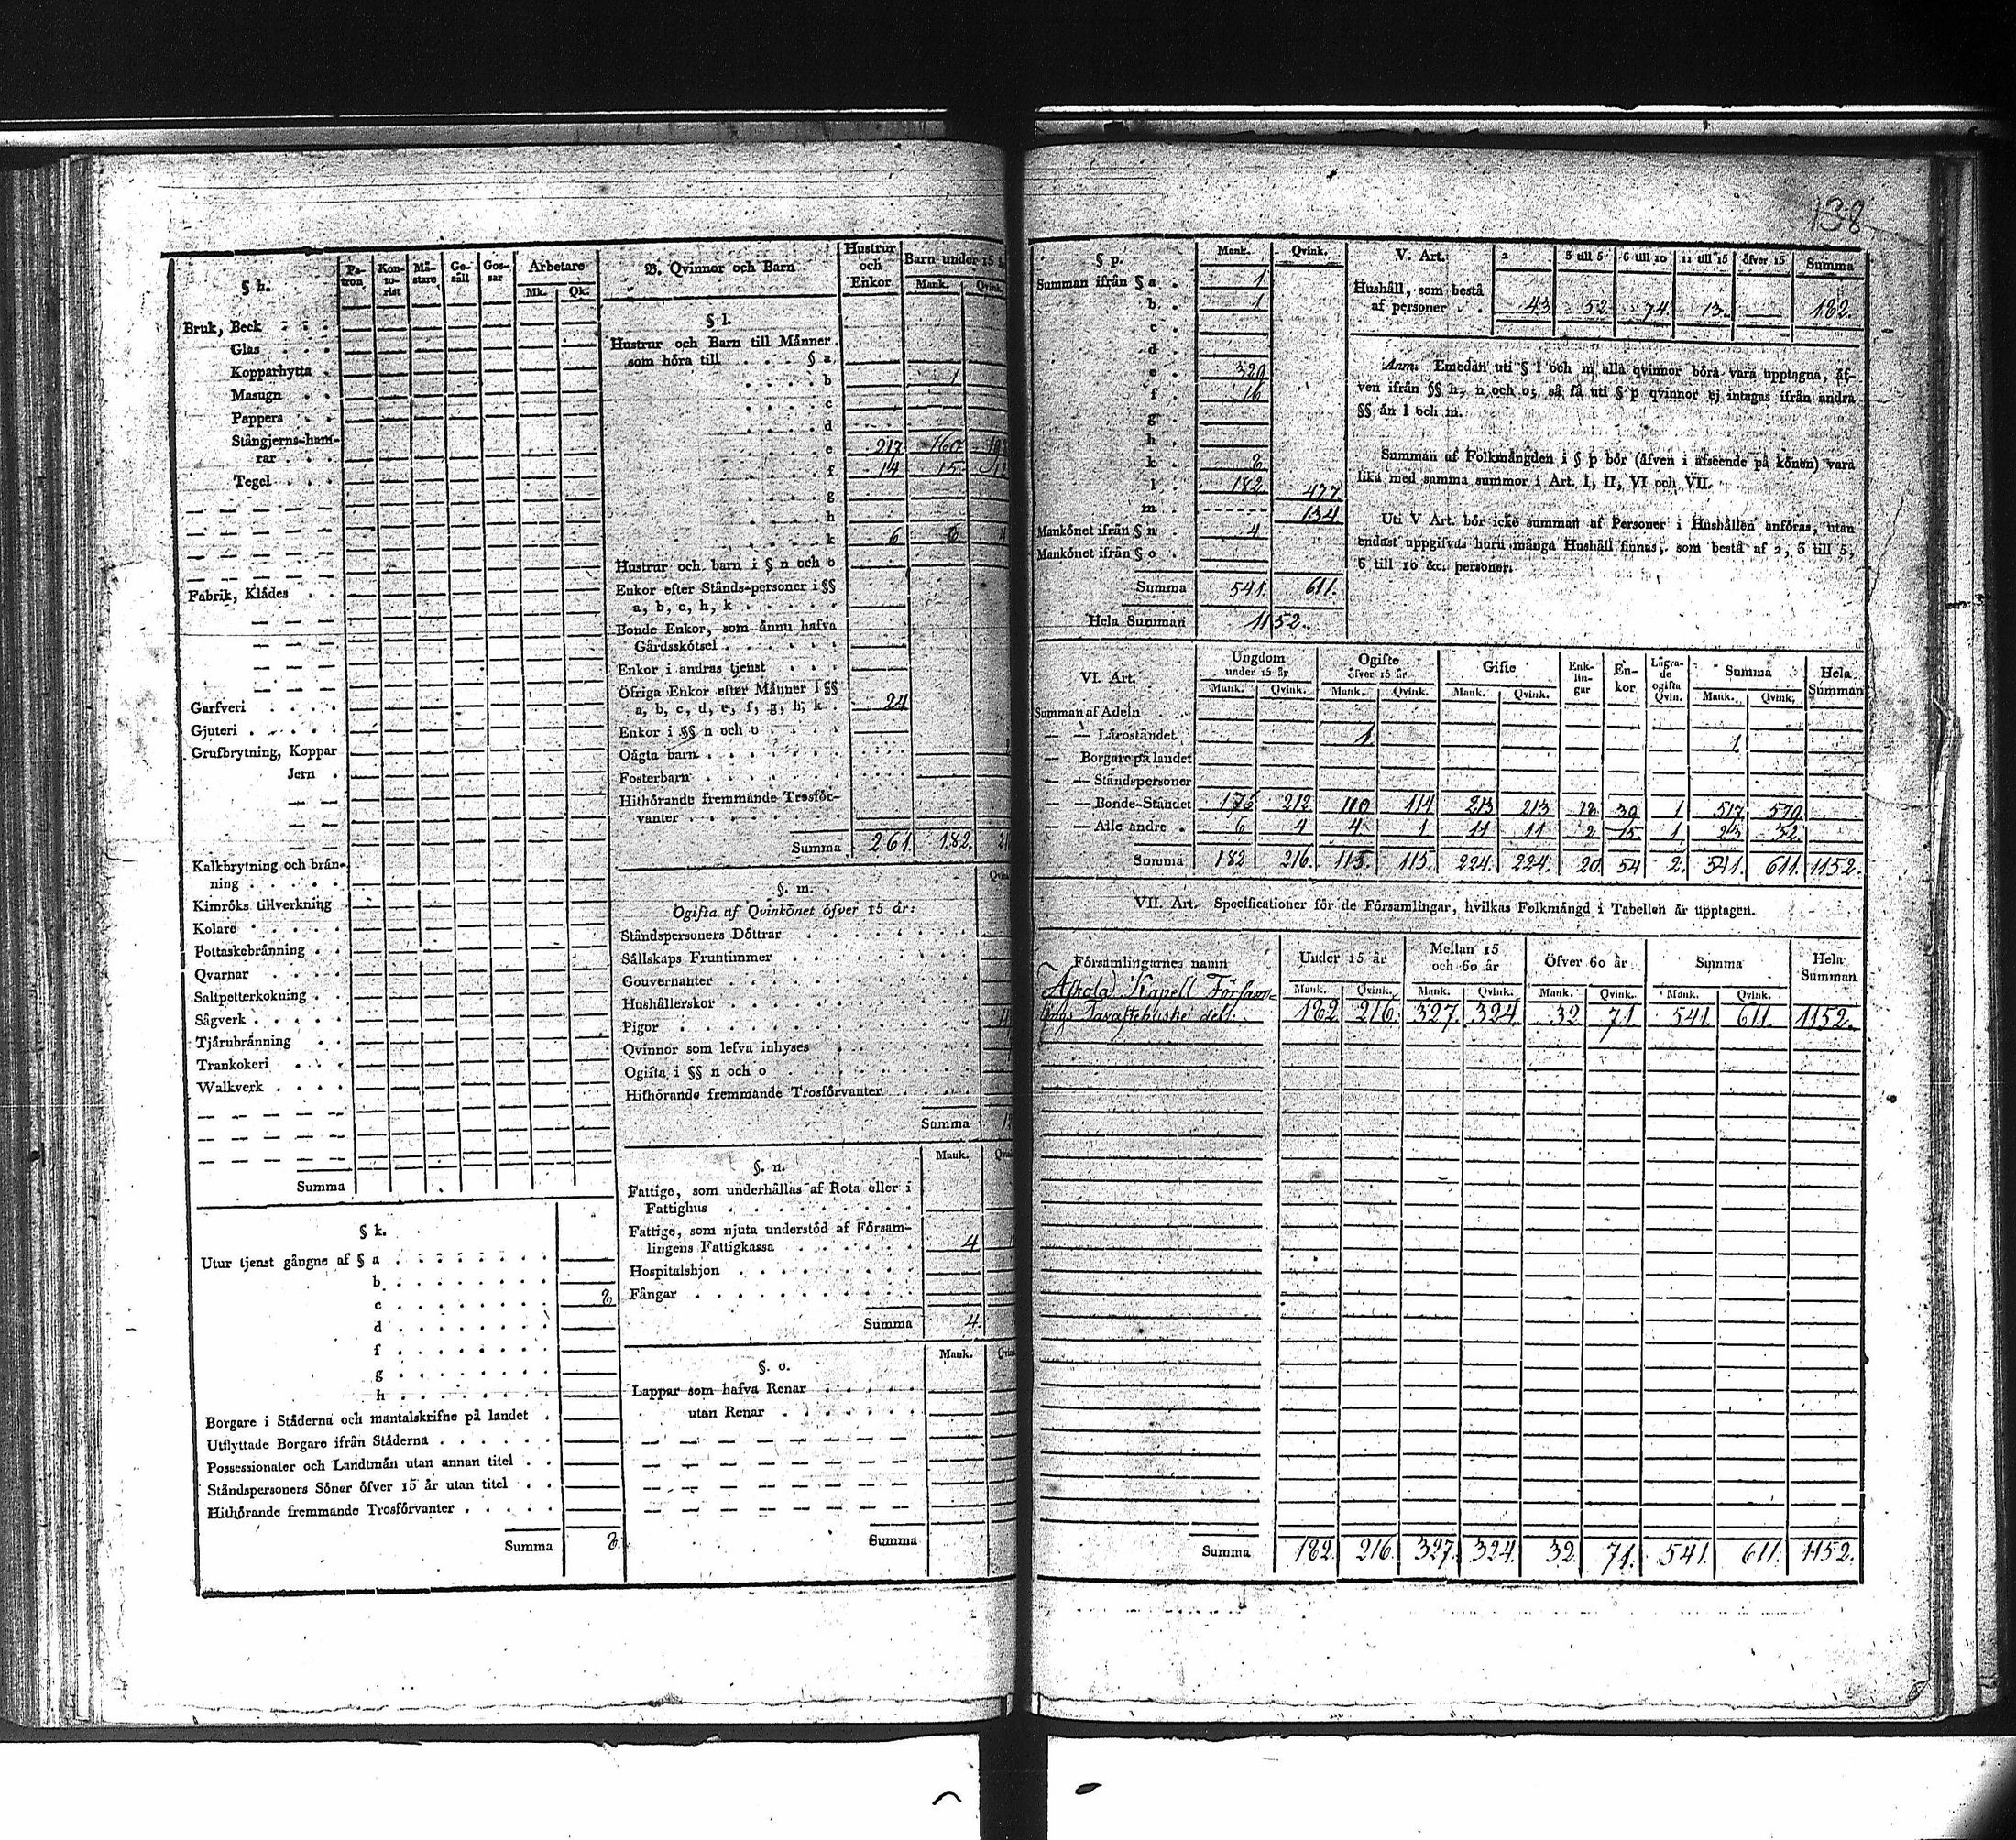 138
§ h.
Pa-
tron
Kon-
to-
rist
Mä-
stare
Ge-
säll
Gos-
sar
Arbetare
Mk. Qk.
Bruk, Beck
Glas
Kopparhytta
Masugn
Pappers
Stångjerns-ham-
rar
Tegel
Fabrik, Klädes
Garfveri
Gjuteri
Grufbrytning, Koppar
Jern
Kalkbrytning och brän-
ning
Kimröks tillverkning
Kolare
Pottaskebränning
Qvarnar
Saltpetterkokning
Sågverk
Tjärubränning
Trankokeri
Walkverk
Summa
§ k.
Utur tjenst gångne af § a
b
c 8
d
f
g
h
Borgare i Städerna och mantalskrifne på landet
Utflyttade Borgare ifrån Städerna
Possessionater och Landtmän utan annan titel
Ståndspersoners Söner öfver 15 år utan titel
Hithörande fremmande Trosförvanter
Summa 8.
B. Qvinnor och Barn
Hustrur
och
Enkor
Barn under 15
Mank. Qvink.
§ l.
Hustrur och Barn till Männer
som höra till § a
b 1
c
d
e 217 160
f 14 15
g
h
k 6 6 4
Hustrur och barn i § n och o
Enkor efter Stånds-personer i §§
a, b, c, h, k
Bonde Enkor, som ännu hafva
Gårdsskötsel
Enkor i andras tjenst
Öfriga Enkor efter Männer i §§
a, b, c, d, e, f, g, h, k 24
Enkor i §§ n och o
Oägta barn
Fosterbarn
Hithörande fremmande Trosför-
vanter
Summa 261. 182.
§. m.
Ogifta af Qvinkönet öfver 15 år:
Ståndspersoners Döttrar
Sällskaps Fruntimmer
Gouvernanter
Hushållerskor
Pigor
Qvinnor som lefva inhyses
Ogifta i §§ n och o
Hithörande fremmande Trosförvanter
Summa
§. n.
Mank.
Fattige, som underhållas af Rota eller i
Fattighus
Fattige, som njuta understöd af Försam-
lingens Fattigkassa 4
Hospitalshjon
Fångar
Summa 4.
§. o.
Mank.
Lappar som hafva Renar
utan Renar
Summa
§ p. Mank. Qvink.
Summan ifrån § a 1
b 1
c
d
e 329
f 16
g
h
k 8
l 182 477
m 134
Mankönet ifrån § n 4
Mankönet ifrån § o
Summa 541. 611.
Hela Summan 1152.
V. Art. 2 3 till 5 6 till 10 11 till 15 öfver 15 Summa
Hushåll, som bestå
af personer 43. 52 74. 13. 182.
Anm. Emedan uti § l och m alla qvinnor böra vara upptagna, äf-
ven ifrån §§ h, n och o, så få uti § p qvinnor ej intagas ifrån andra
§§ än l och m.
Summan af Folkmängden i § p bör (äfven i afseende på könen) vara
lika med samma summor i Art. I, II, VI och VII.
Uti V Art. bör icke summan af Personer i Hushållen anföras, utan
endast uppgifvas huru många Hushåll finnas, som bestå af 2, 3 till 5,
6 till 10 &c. personer.
VI. Art.
Ungdom
under 15 år
Ogifte
öfver 15 år
Gifte
Enk-
lin-
gar
En-
kor
Lägra-
de
ogifta
Qvin.
Summa
Hela
Summan
Mank. Qvink. Mank. Qvink. Mank. Qvink. Mank. Qvink.
Summan af Adeln
— — Läroståndet 1 1
— Borgare på landet
— — Ståndspersoner
— — Bonde-Ståndet 176 212 110 114 213 213 18 39 1 517 579
— — Alle andre 6 4 4 1 11 11 2 15 1 23 32
Summa 182 216. 115. 115. 224. 224. 20. 54 2. 541. 611. 1152.
VII. Art. Specificationer för de Församlingar, hvilkas Folkmängd i Tabellen är upptagen.
Församlingarnes namn
Under 15 år
Mellan 15
och 60 år
Öfver 60 år
Summa
Hela
Summan
Mank. Qvink. Mank. Qvink. Mank. Qvink. Mank. Qvink.
Askola Kapell Försam-
lings Tavastehuske del. 182 216 327. 324 32 71 541 611 1152.
Summa 182. 216 327. 324. 32. 71. 541. 611. 1152.